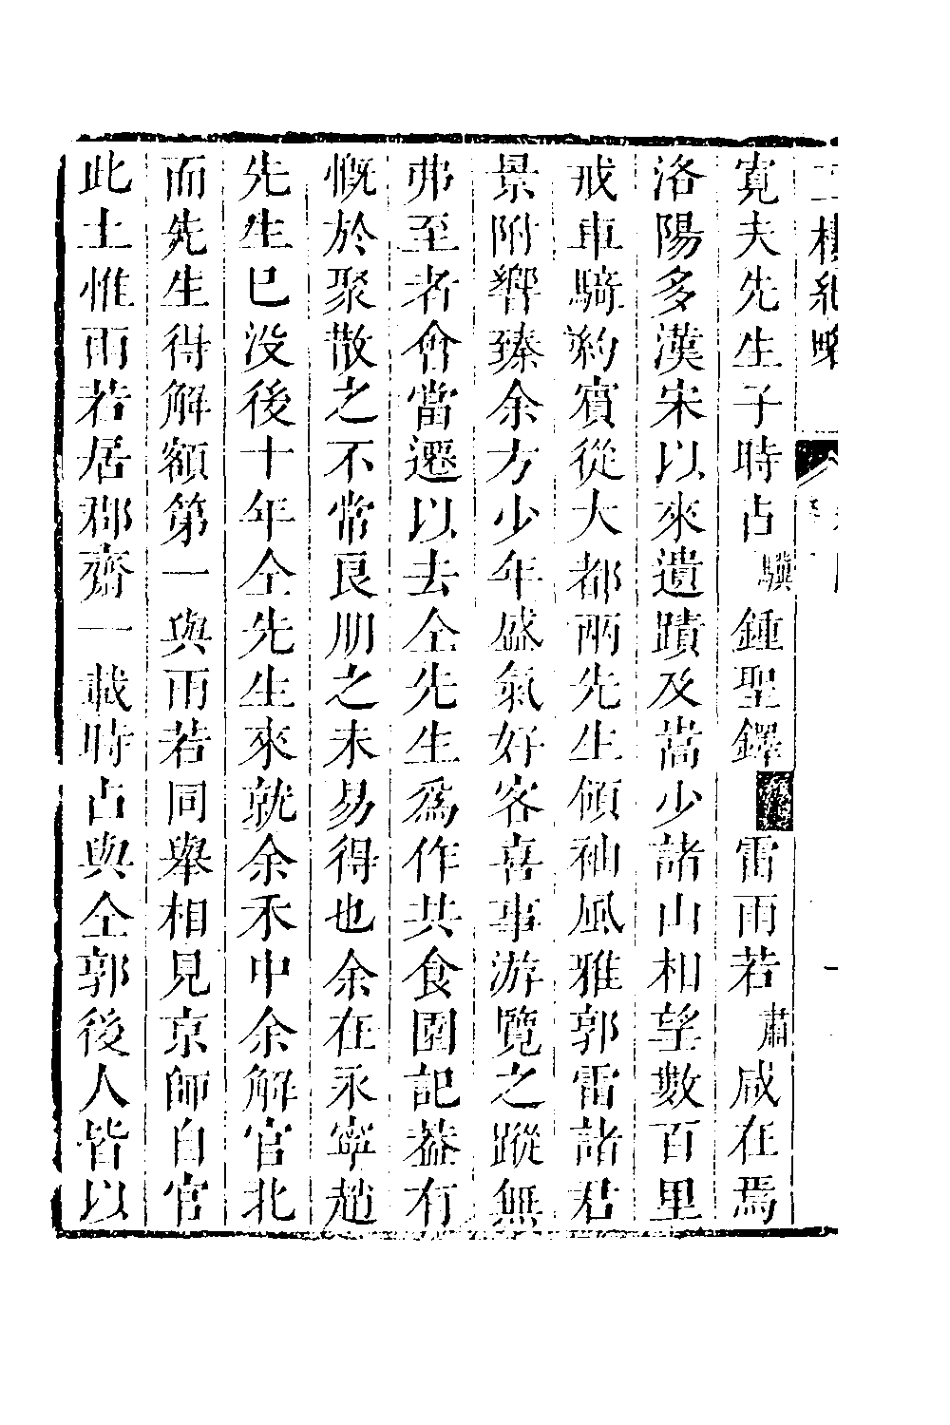 二樓紀略
寛夫先生子時占驥鍾聖鐸雷雨若肅咸在焉
洛陽多漢宋以來遺蹟及嵩少諸山相望數百里
戒車騎約賓從大都兩先生傾袖風雅郭雷諸君
景附響臻余方少年盛氣好客喜事游覽之蹤無
弗至者會當遷以去仝先生爲作共食園記葢有
慨於聚散之不常良朋之未易得也余在永寧趙
先生巳没後十年仝先生來就余禾中余解官北
而先生得解額第一與雨若同舉相見京師自官
此土惟雨若居郡齋一載時占與仝郭後人皆以